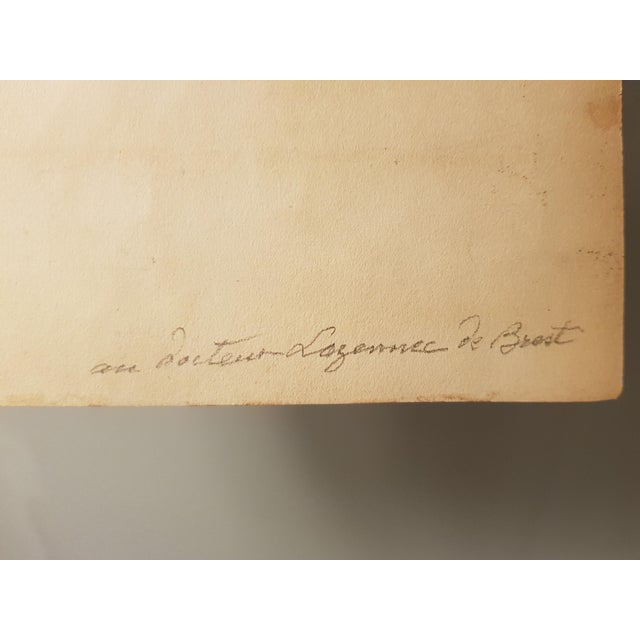 au docteur Lazennec de Brest